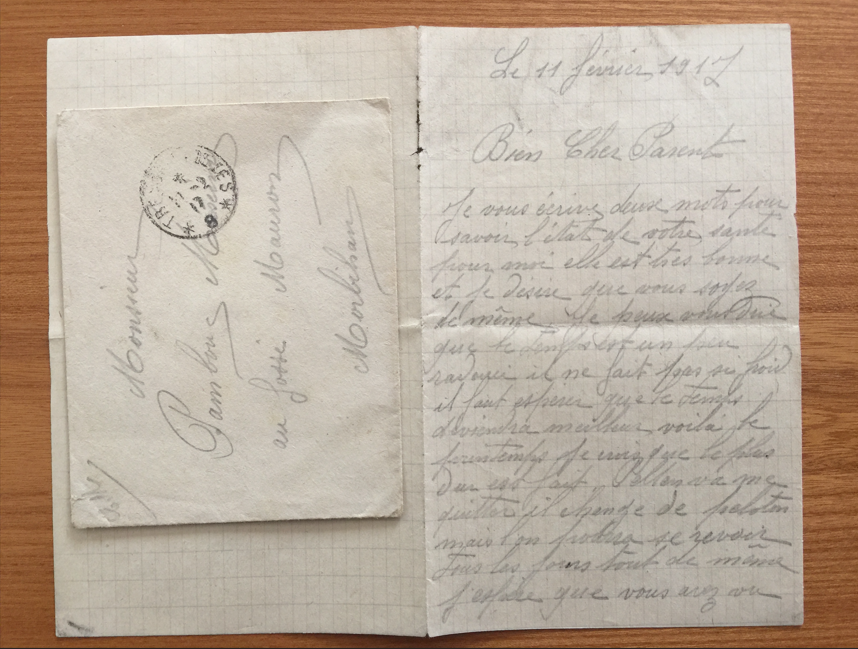 Monsieur
Pambouc M
au fossé Mauron
Morbihan
Le 11 février 1917
Bien Cher Parent
Je vous écrive deux mots pour
savoir l'état de votre santé
pour moi elle est très bonne
et je désire que vous soyez
de même Je peux vous dire
que le temps est un peu
radouci il ne fait pas si froid
il faut espérer que le temps
deviendra meilleur voilà le
printemps Je crois que le plus
dur est fait va me
quitter il change de peloton
mais on poura se revoir
tous les jours tout de même
j'espère que vous avez vu